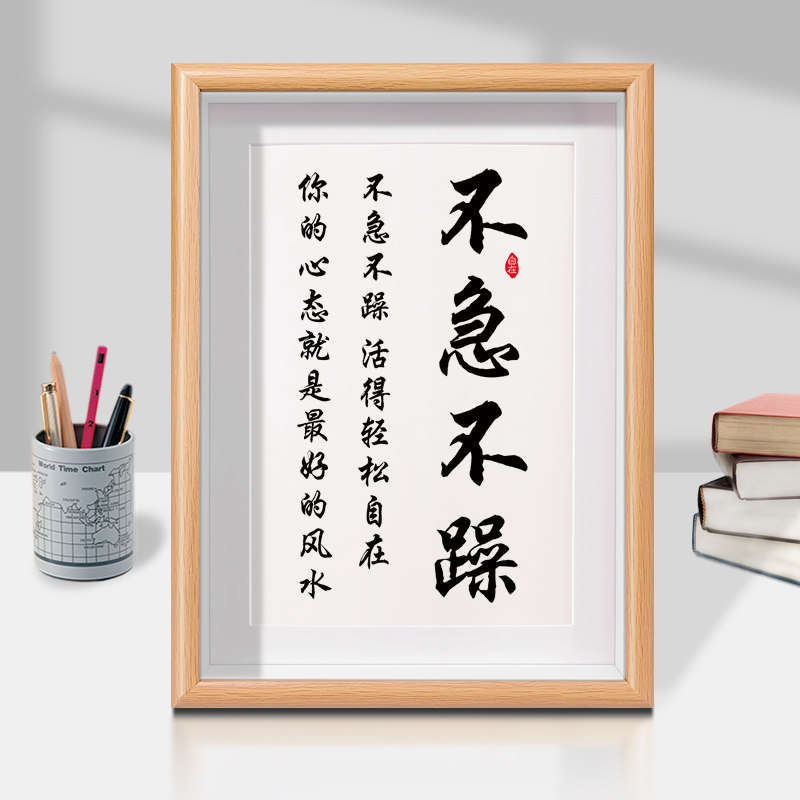 不急不躁
自在
不急不躁 活得轻松自在
你的心态就是最好的风水
World Time Chart